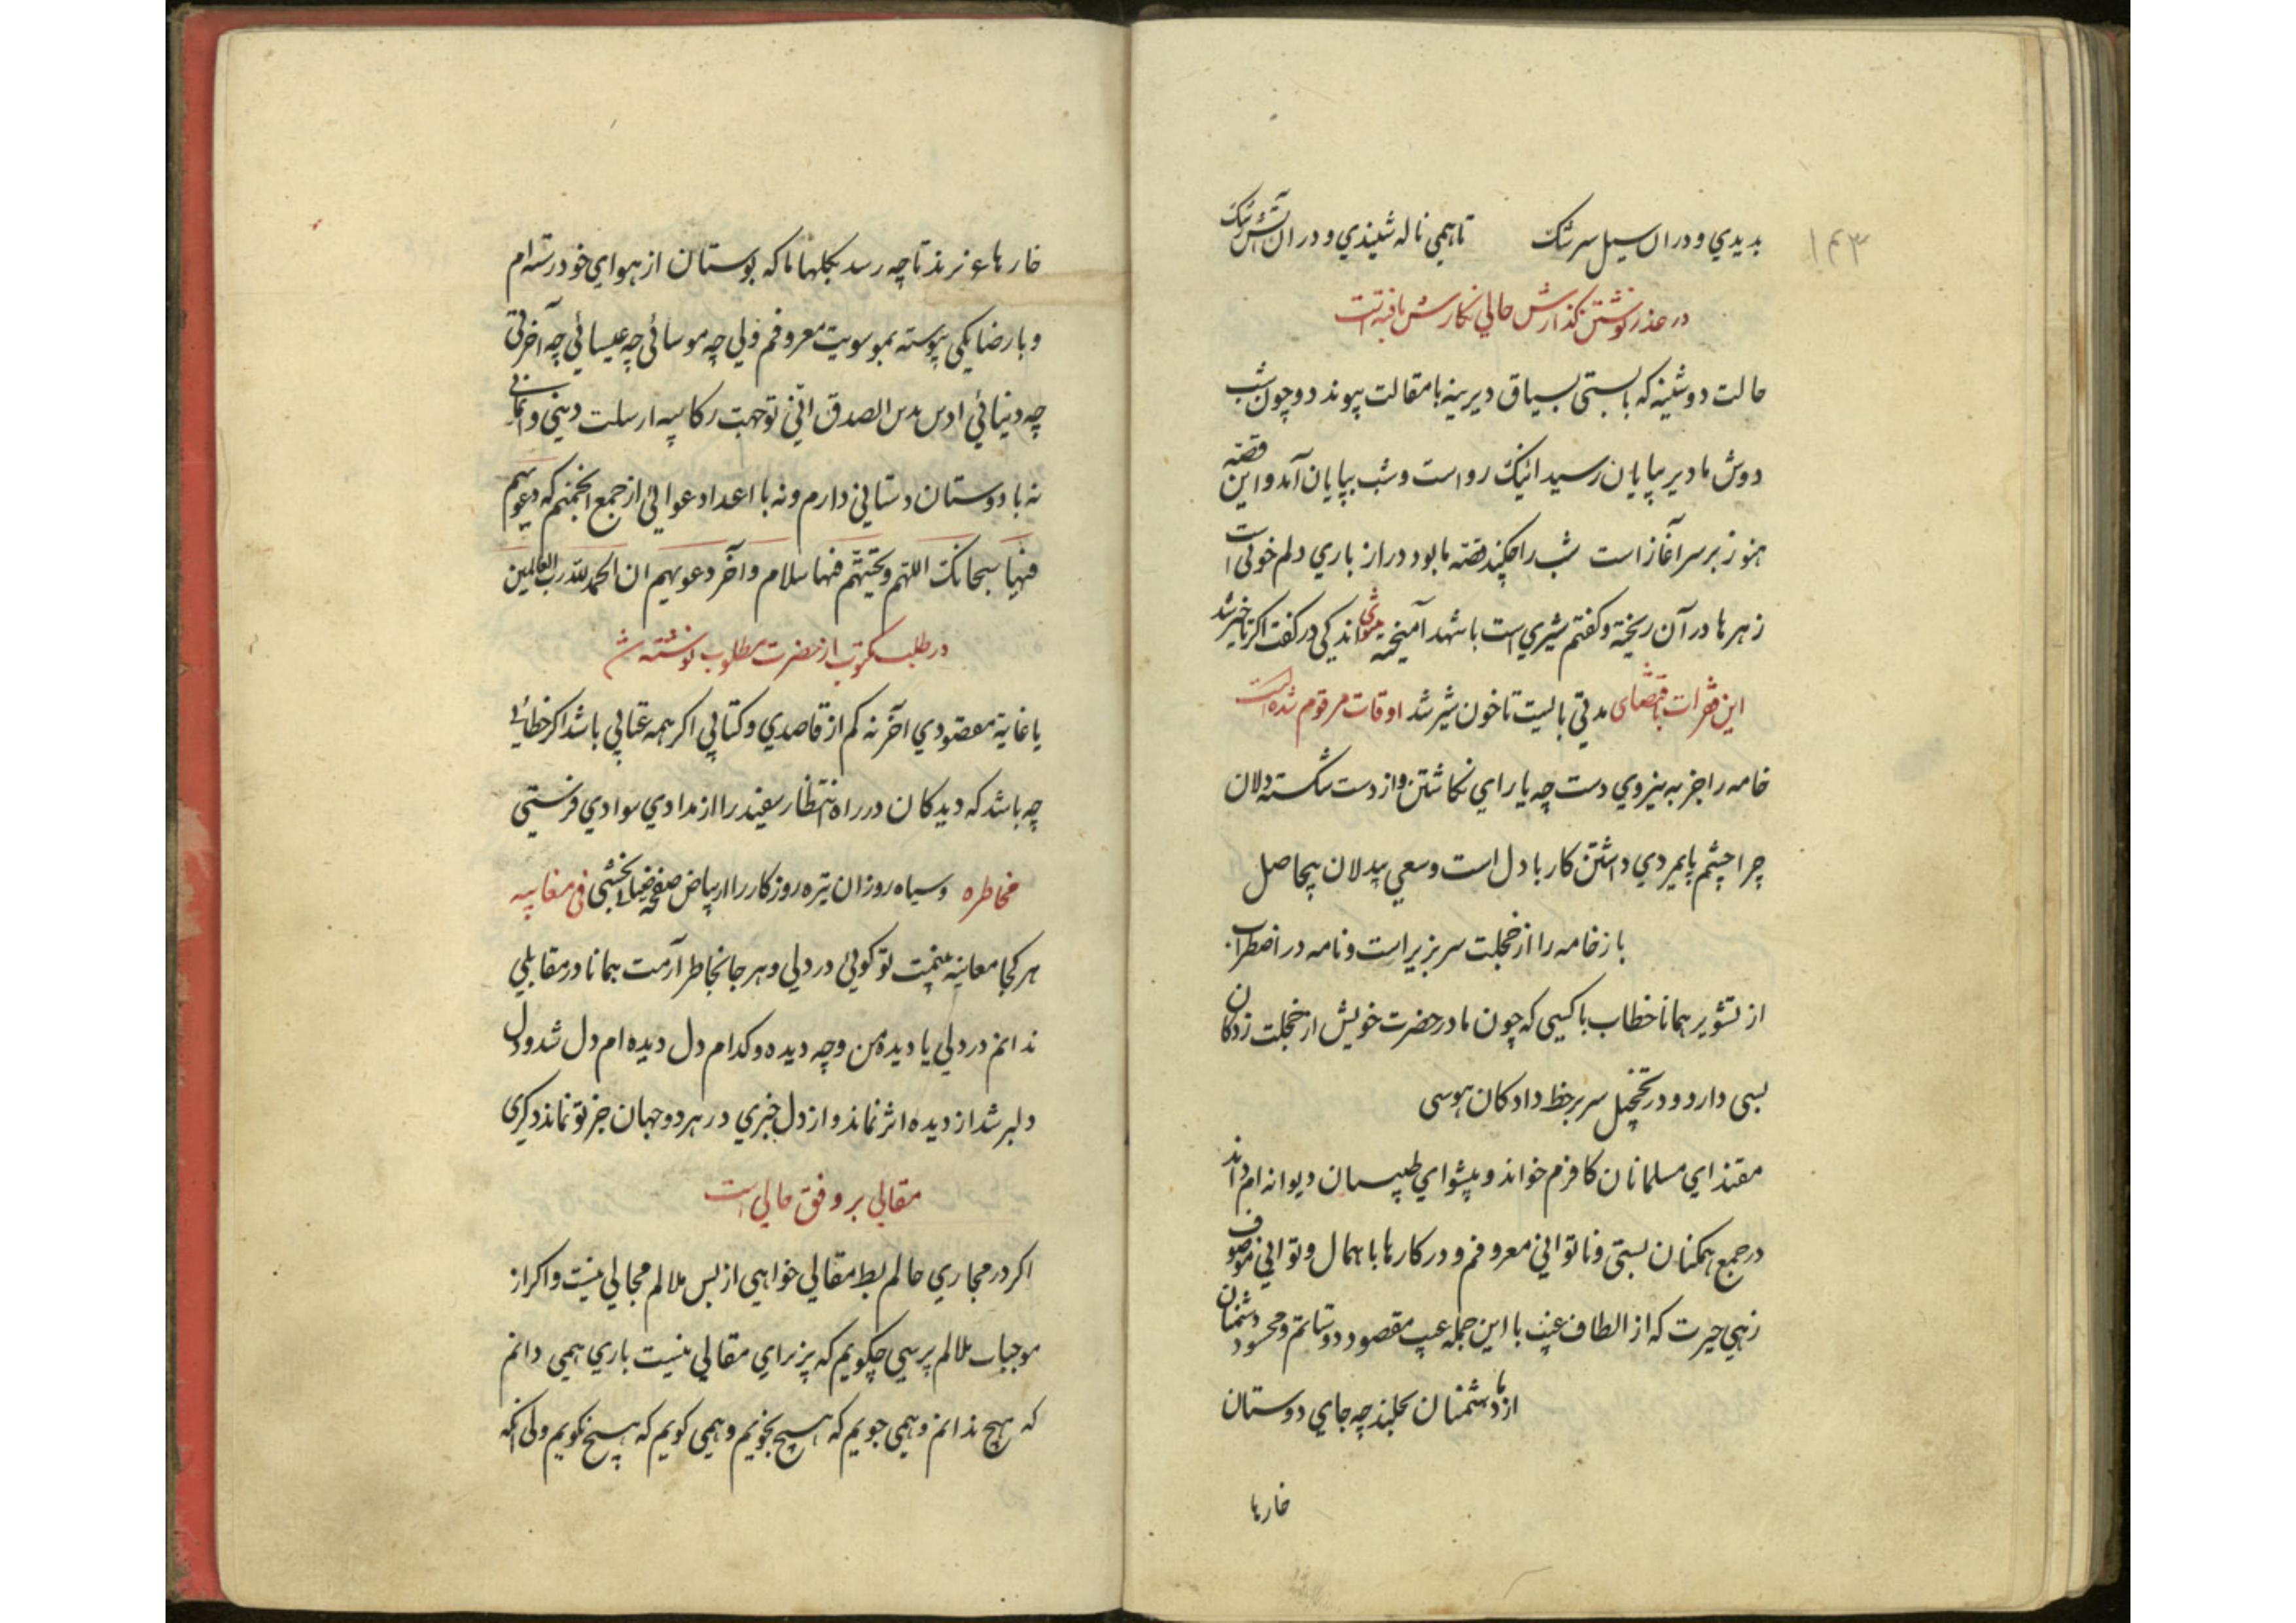 ۱۴۳
بدیدي و دران سیل سرشک تا همي ناله شنیدي و دران آتش رشک
در عذر نوشتن گذارش حالي نگارش یافته است
حالت دوشینه که بایستی بسیاق دیرینه با مقالت پیوندد و چون شب
دوش ما دیر بپایان رسید اینک رواست و شب بپایان آمد و این قصّه
هنوز بر سر آغاز است شب را چکند قصّه ما بود دراز باري دلم خونی است
زهرها در آن ریخته و گفتم شیري است با شهد آمیخته مثنوی اندکي در گفت اگر تاخیر شد
این فقرات باقتضای مدتي بایست تا خون شیر شد اوقات مرقوم شده است
خامه را جز به نیروي دست چه یاراي نگاشتن و از دست شکسته دلان
چرا چشم پایمردي داشتن کار با دل است و سعي بیدلان بیحاصل
باز خامه را از خجلت سر بزیر است و نامه در اضطراب
از تشویر همانا خطاب با کسي که چون ما در حضرت خویش از خجلت زدگان
بسی دارد و در تخجیل سر بر خط دادگان هوسی
مقتداي مسلمانان کافرم خواند و پیشواي طبیبان دیوانه ام داند
در جمع همکنان بسستی و ناتواني معروفم و در کارها باهمال و تواني موصوف
زهي حیرت که از الطاف غیب با این جمله عیب مقصود دوستانم و محسود دشمنان
از ما دشمنان نخلیند چه جاي دوستان
خارها
خارها عزیزند تا چه رسد بگلها ما که بوستان از هواي خود رسته ام
و با رضا یکي پیوسته بموسویت معروفم ولي چه موسائي چه عیسائي چه آخرتی
چه دنیائي الصدق انّي توجهت رکابیه ارسلت دیني و ایماني
نه با دوستان دستاني دارم و نه با اعدا دعوائي از جمع انجمنم که دعویهم
فیها سبحانک اللهم و تحیتهم فیها سلام و آخر دعویهم ان الحمد لله رب العالمین
در طلب مکتوب از حضرت مطلوب نوشته شد
یا غایة مقصودي آخر نه کم از قاصدي و کتابي اگر همه عتابي باشد اگر خطائي
چه باشد که دیدگان در راه انتظار سفید را از مدادي سوادي فرستي
مخاطره و سیاه روزان تیره روزگار را از بیاض صفحه ضیا بخشي في مغایبه
هر کجا معاینه بینمت تو گوئي در دلي و هر جا بخاطر آرمت همانا در مقابلي
ندانم در دلي یا دیده من و چه دیده و کدام دل دیده ام دل شد و دل
دلبر شد از دیده اثر نماند و از دل خبري در هر دو جهان جز تو نماند دگری
مقالي بر وفق حالي است
اگر در مجاري حالم بسط مقالي خواهي از بس ملالم مجالي نیست و اگر از
موجبات ملالم پرسي چگویم که پذیراي مقالي نیست باري همي دانم
که هیچ ندانم و همي جویم که هیچ نجویم و همي گویم که هیچ نگویم ولی آنکه